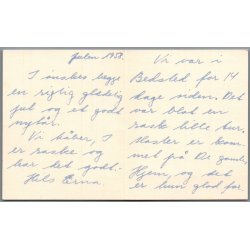 Julen 1958.
I ønskes begge
en rigtig glædelig
jul og et godt
nytår.
Vi håber, I
er raske og
har det godt.
Hils Erna
Vi var i
Bedsted for 14
dage siden. Det
var blot en
rask lille tur.
Faster er kom-
met på De gamles
Hjem, og det
er hun glad for